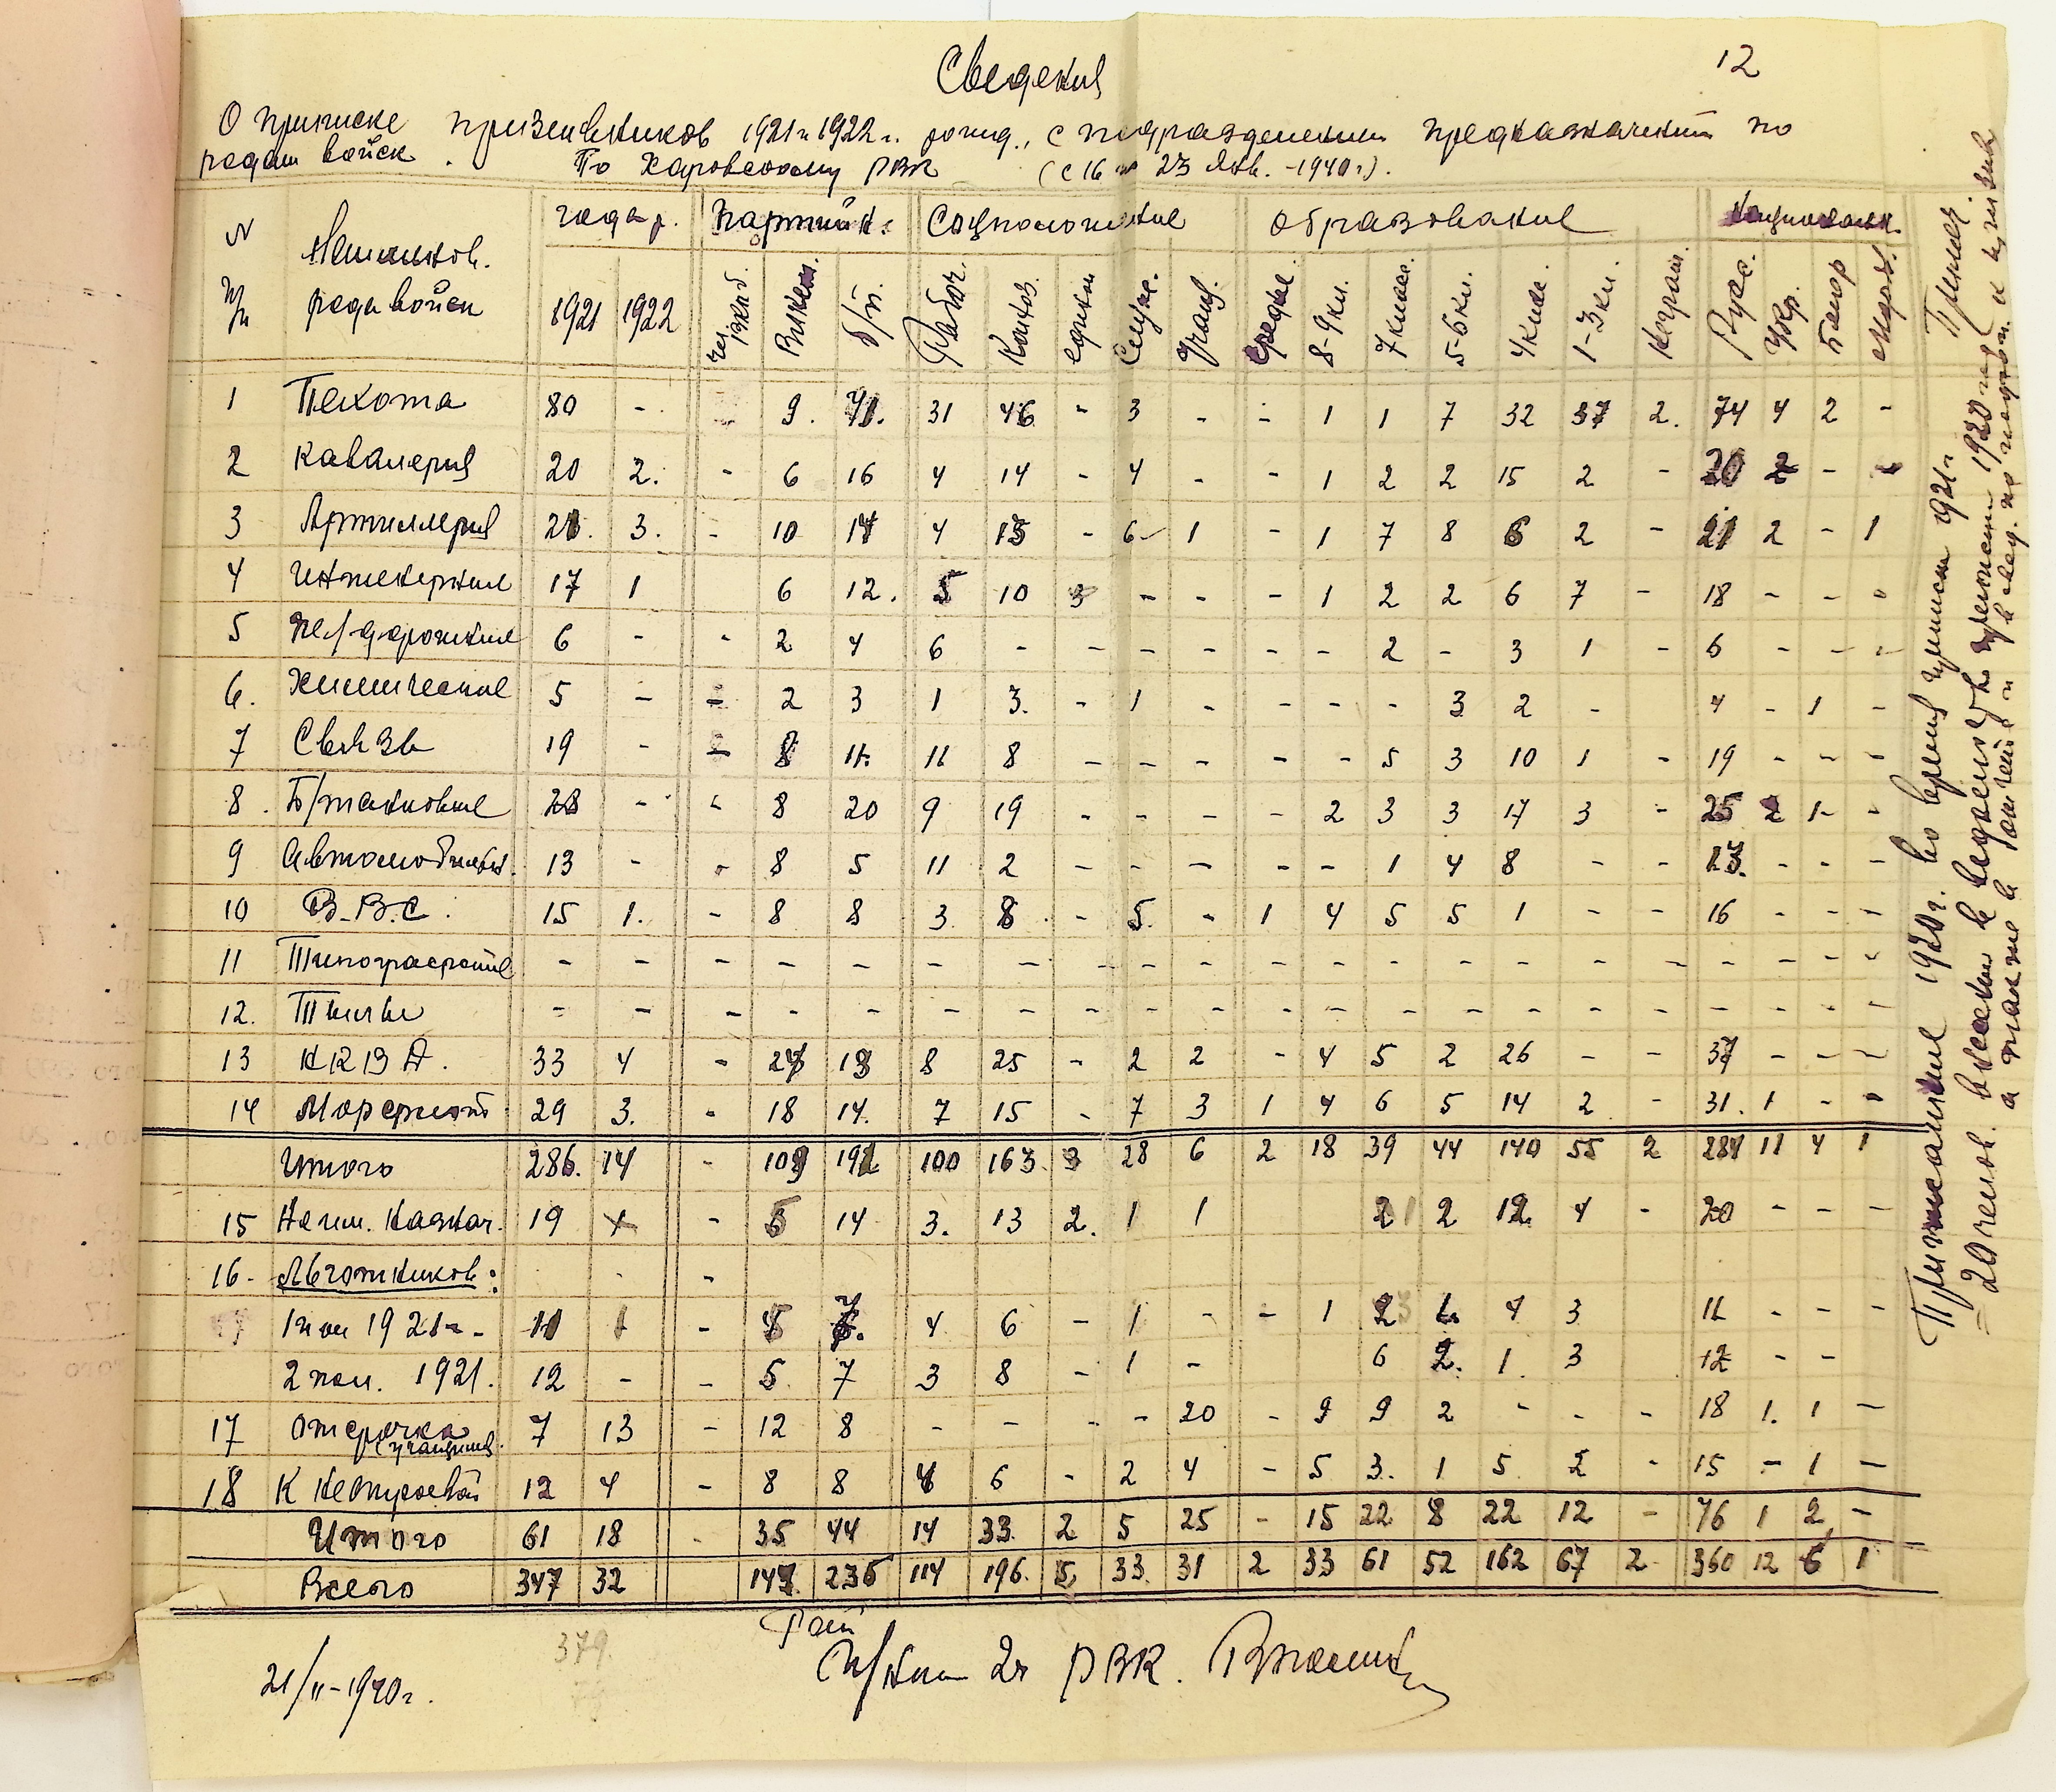 12
Сведения
О приписке призывников 1921 и 1922 г. рожд., с подразделением предназначений по
родам войск. По Харовскому РВК (с 16 по 23 Янв. -1940 г.).
N п/п Наименов. рода войск года р. Партийн. Социположение образование национальн. Примеч.
1921 1922 Влксм. б/п. Рабоч. Колхоз. един Служ. Учащ. средне. 8-9 кл. 7 класс. 5-6 кл. 4 класс. 1-3 кл. Неграм. Русс. Укр. Белор
1 Пехота 80 - 9. 71. 31 46 - 3 - - 1 1 7 32 37 2. 74 4 2 -
2 Кавалерия 20 2. - 6 16 4 14 - 4 - - 1 2 2 15 2 - 20 2 - -
3 Артиллерия 21. 3. - 10 14 4 13 - 6 1 - 1 7 8 6 2 - 21 2 - 1
4 Инженерные 17 1 6 12. 5 10 3 - - - 1 2 2 6 7 - 18 - - -
5 жел/дорожные 6 - - 2 4 6 - - - - - - 2 - 3 1 - 6 - - -
6. Химические 5 - - 2 3 1 3. - 1 - - - - 3 2 - 4 - 1 -
7 Связь 19 - - 8 11. 11 8 - - - - - 5 3 10 1 - 19 - - -
8. Б/танковые 28 - - 8 20 9 19 - - - - 2 3 3 17 3 - 25 2 1 -
9 Автомобильн. 13 - - 8 5 11 2 - - - - - 1 4 8 - - 13. - - -
10 В.В.С. 15 1. - 8 8 3. 8 - 5. - 1 4 5 5 1 - - 16 - - -
11 Типографские - - - - - - - - - - - - - - - - - - - - -
12. - - - - - - - - - - - - - - - - - - - - -
13 НКВД. 33 4 - 24 13 8 25 - 2 2 - 4 5 2 26 - - 37 - - -
14 Морфлот 29 3. - 18 14. 7 15 - 7 3 1 4 6 5 14 2 - 31. 1 - -
Итого 286. 14 - 109 191 100 163. 3 28 6 2 18 39 44 140 55 2 284 11 4 1
15 Не им. Назнач. 19 1 - 5 14 3. 13 2. 1 1 2 2 12. 4 - 20 - - -
16- Льготников: -
1 пол 1921 г. 11 1 - 4 7. 4 6 - 1 - - 1 2 4 3 11 - - -
2 пол. 1921. 12 - - 5. 7 3 8 - 1 - 6 2. 1. 3 12 - -
17 отсрочка учащимся. 7 13 - 12 8 - - - - 20 - 9 9 2 - - - 18 1. 1 -
18 К нестроевой 12 4 - 8 8 4 6 - 2 4 - 5 3. 1 5 2 - 15 - 1 -
Итого 61 18 - 35 44 14 33. 2 5 25 - 15 22 8 22 12 - 76 1 2 -
Всего 347 32 147. 235 114 196. 5 33. 31 2 33 61 52 162 67 2 360 12 6 1
Примечание 1920 г. во время приписки 1921 г
= 20 человек.
379.
21/II-1940 г.
Рай
РВК.